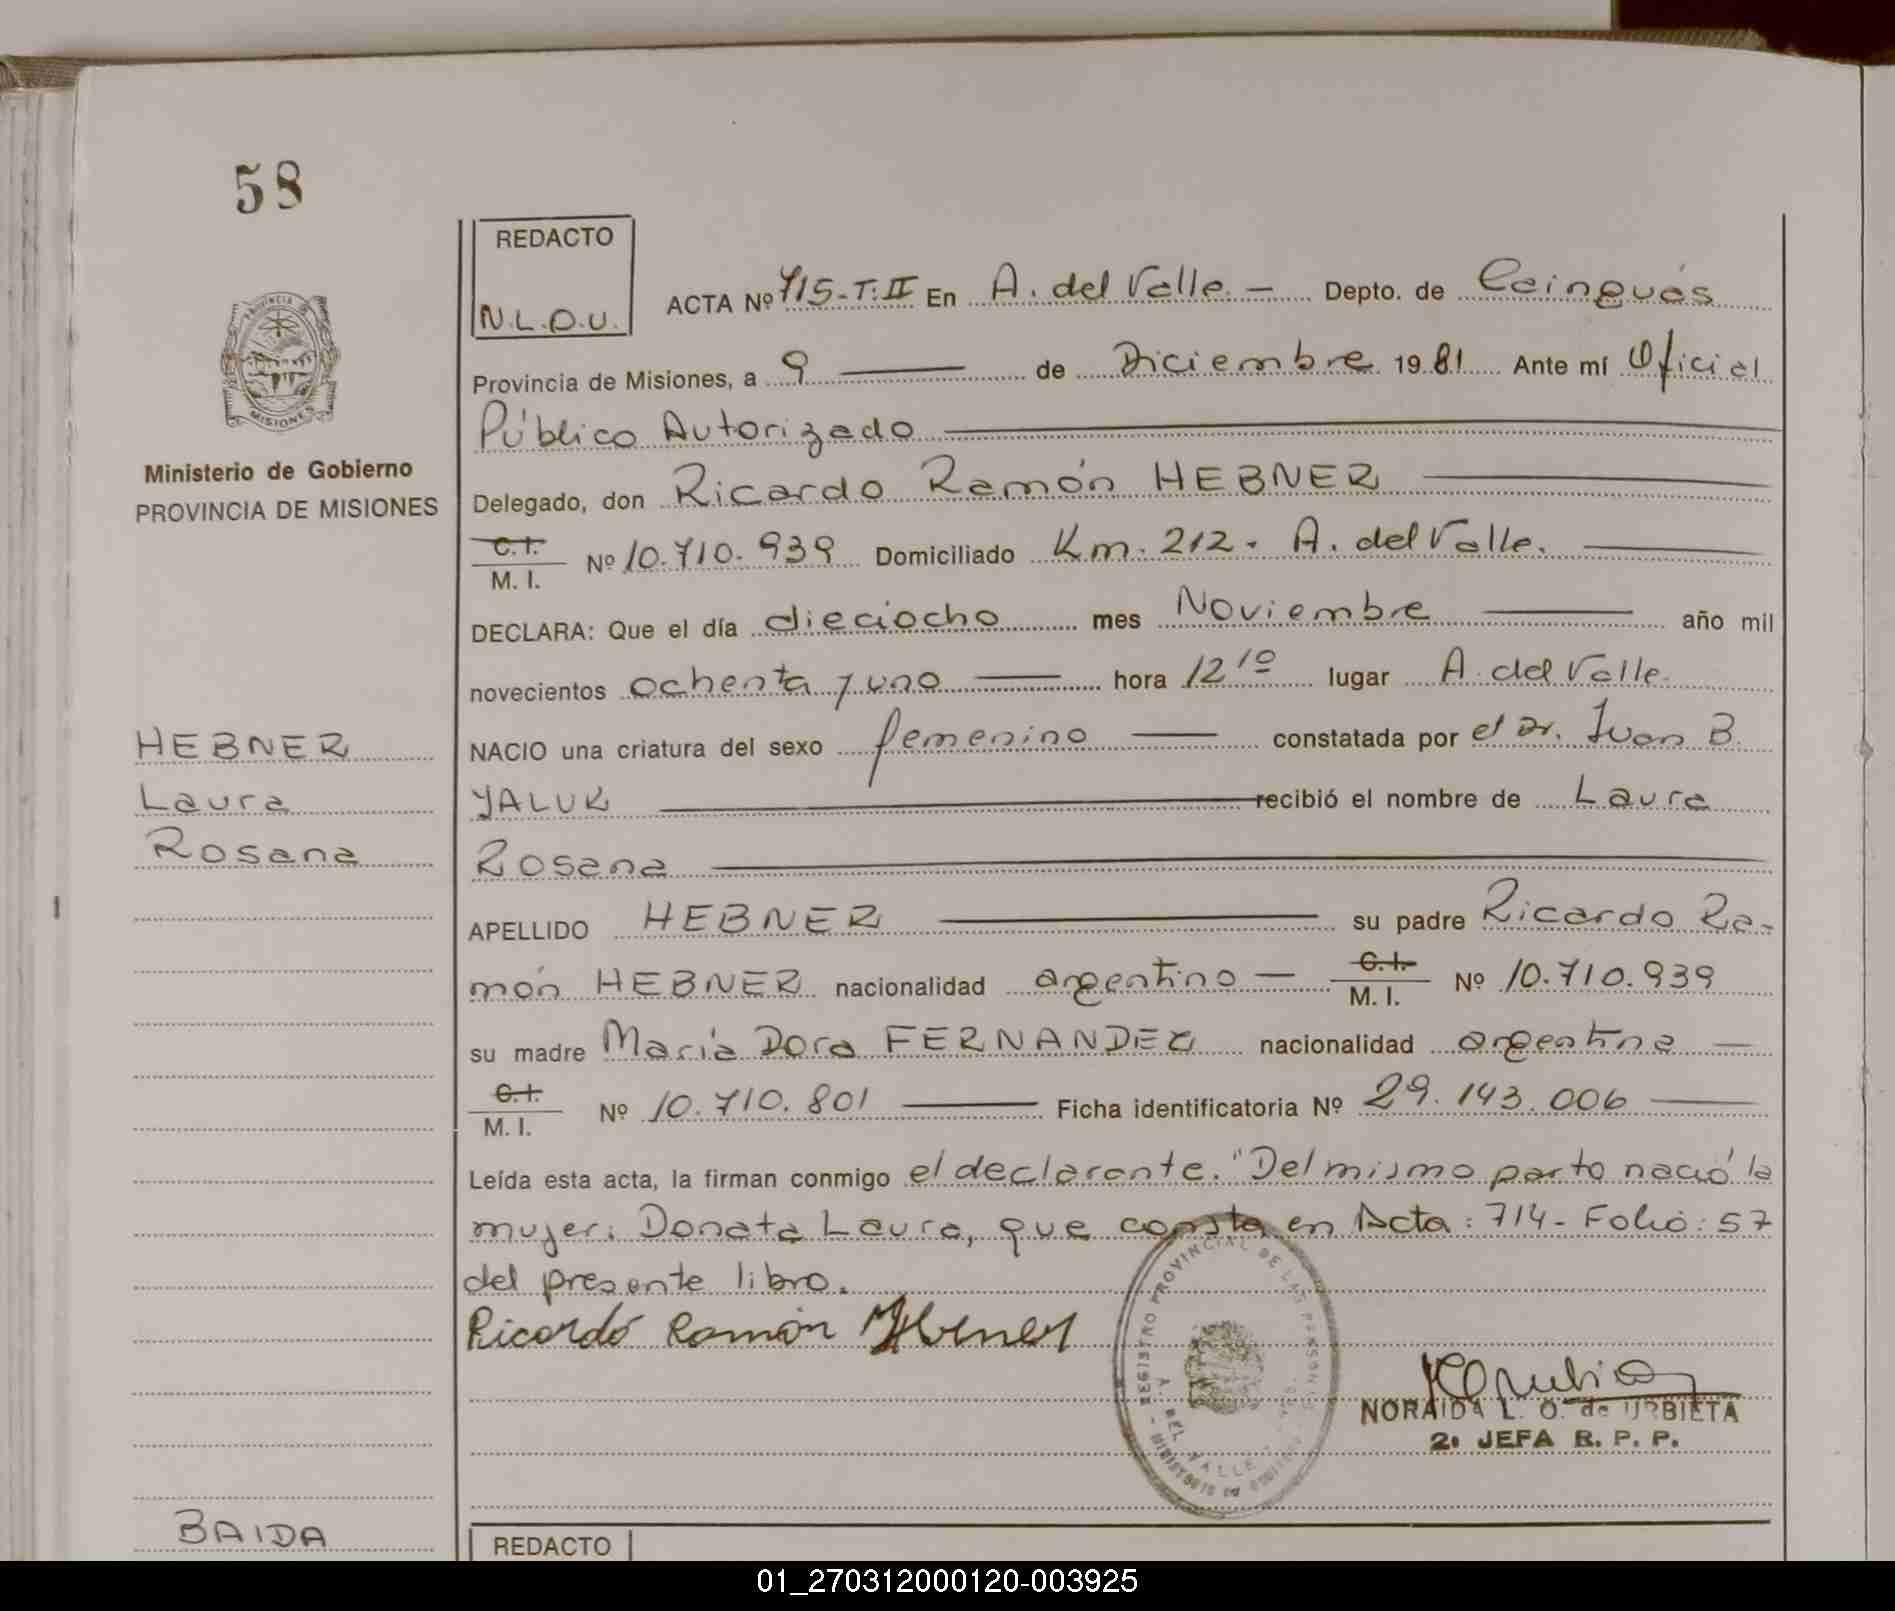 58
REDACTO
N.L.O.U.
ACTA Nº 715-T.II En A. del Valle. — Depto. de Cainguás
Provincia de Misiones, a 9 — de Diciembre 1981 Ante mí Oficial
Público Autorizado
MISIONES
Ministerio de Gobierno
PROVINCIA DE MISIONES
Delegado, don Ricardo Ramón HEBNER
C.I.
M. I. Nº 10.710.939 Domiciliado Km. 212. A. del Valle.
DECLARA: Que el día dieciocho mes Noviembre año mil
novecientos ochenta y uno hora 12 10 lugar A. del Valle.
HEBNER
Laura
Rosana
NACIO una criatura del sexo femenino constatada por el Dr. Juan B.
YALUK recibió el nombre de Laura
Rosana
APELLIDO HEBNER su padre Ricardo Ra-
món HEBNER nacionalidad argentino — C.I. M. I. Nº 10.710.939
su madre María Dora FERNANDEZ nacionalidad argentina —
C.I.
M. I. Nº 10.710.801 Ficha identificatoria Nº 29.143.006
Leída esta acta, la firman conmigo el declarante. "Del mismo parto nació la
mujer: Donata Laura, que consta en Acta: 714- Folio: 57
del presente libro.
Ricardo Ramón Hebner
REGISTRO PROVINCIAL DE LAS PERSONAS
A. DEL VALLE
NORAIDA L. O. de URBIETA
2ª JEFA R. P. P.
BAIDA
REDACTO
01_270312000120-003925